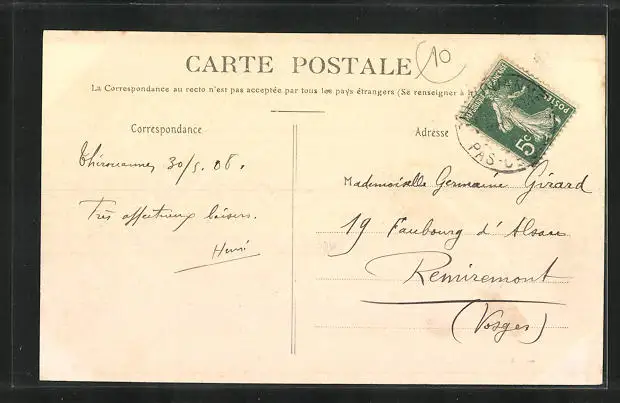 CARTE POSTALE
10
La Correspondance au recto n'est pas acceptée par tous les pays étrangers (Se renseigner à
Correspondance
Adresse
POSTES
5c
PAS-
Thérouanne, 30/5. 08.
Très affectueux baisers.
Henri
Mademoiselle Germaine Girard
19 Faubourg d'Alsace
Remiremont
(Vosges)